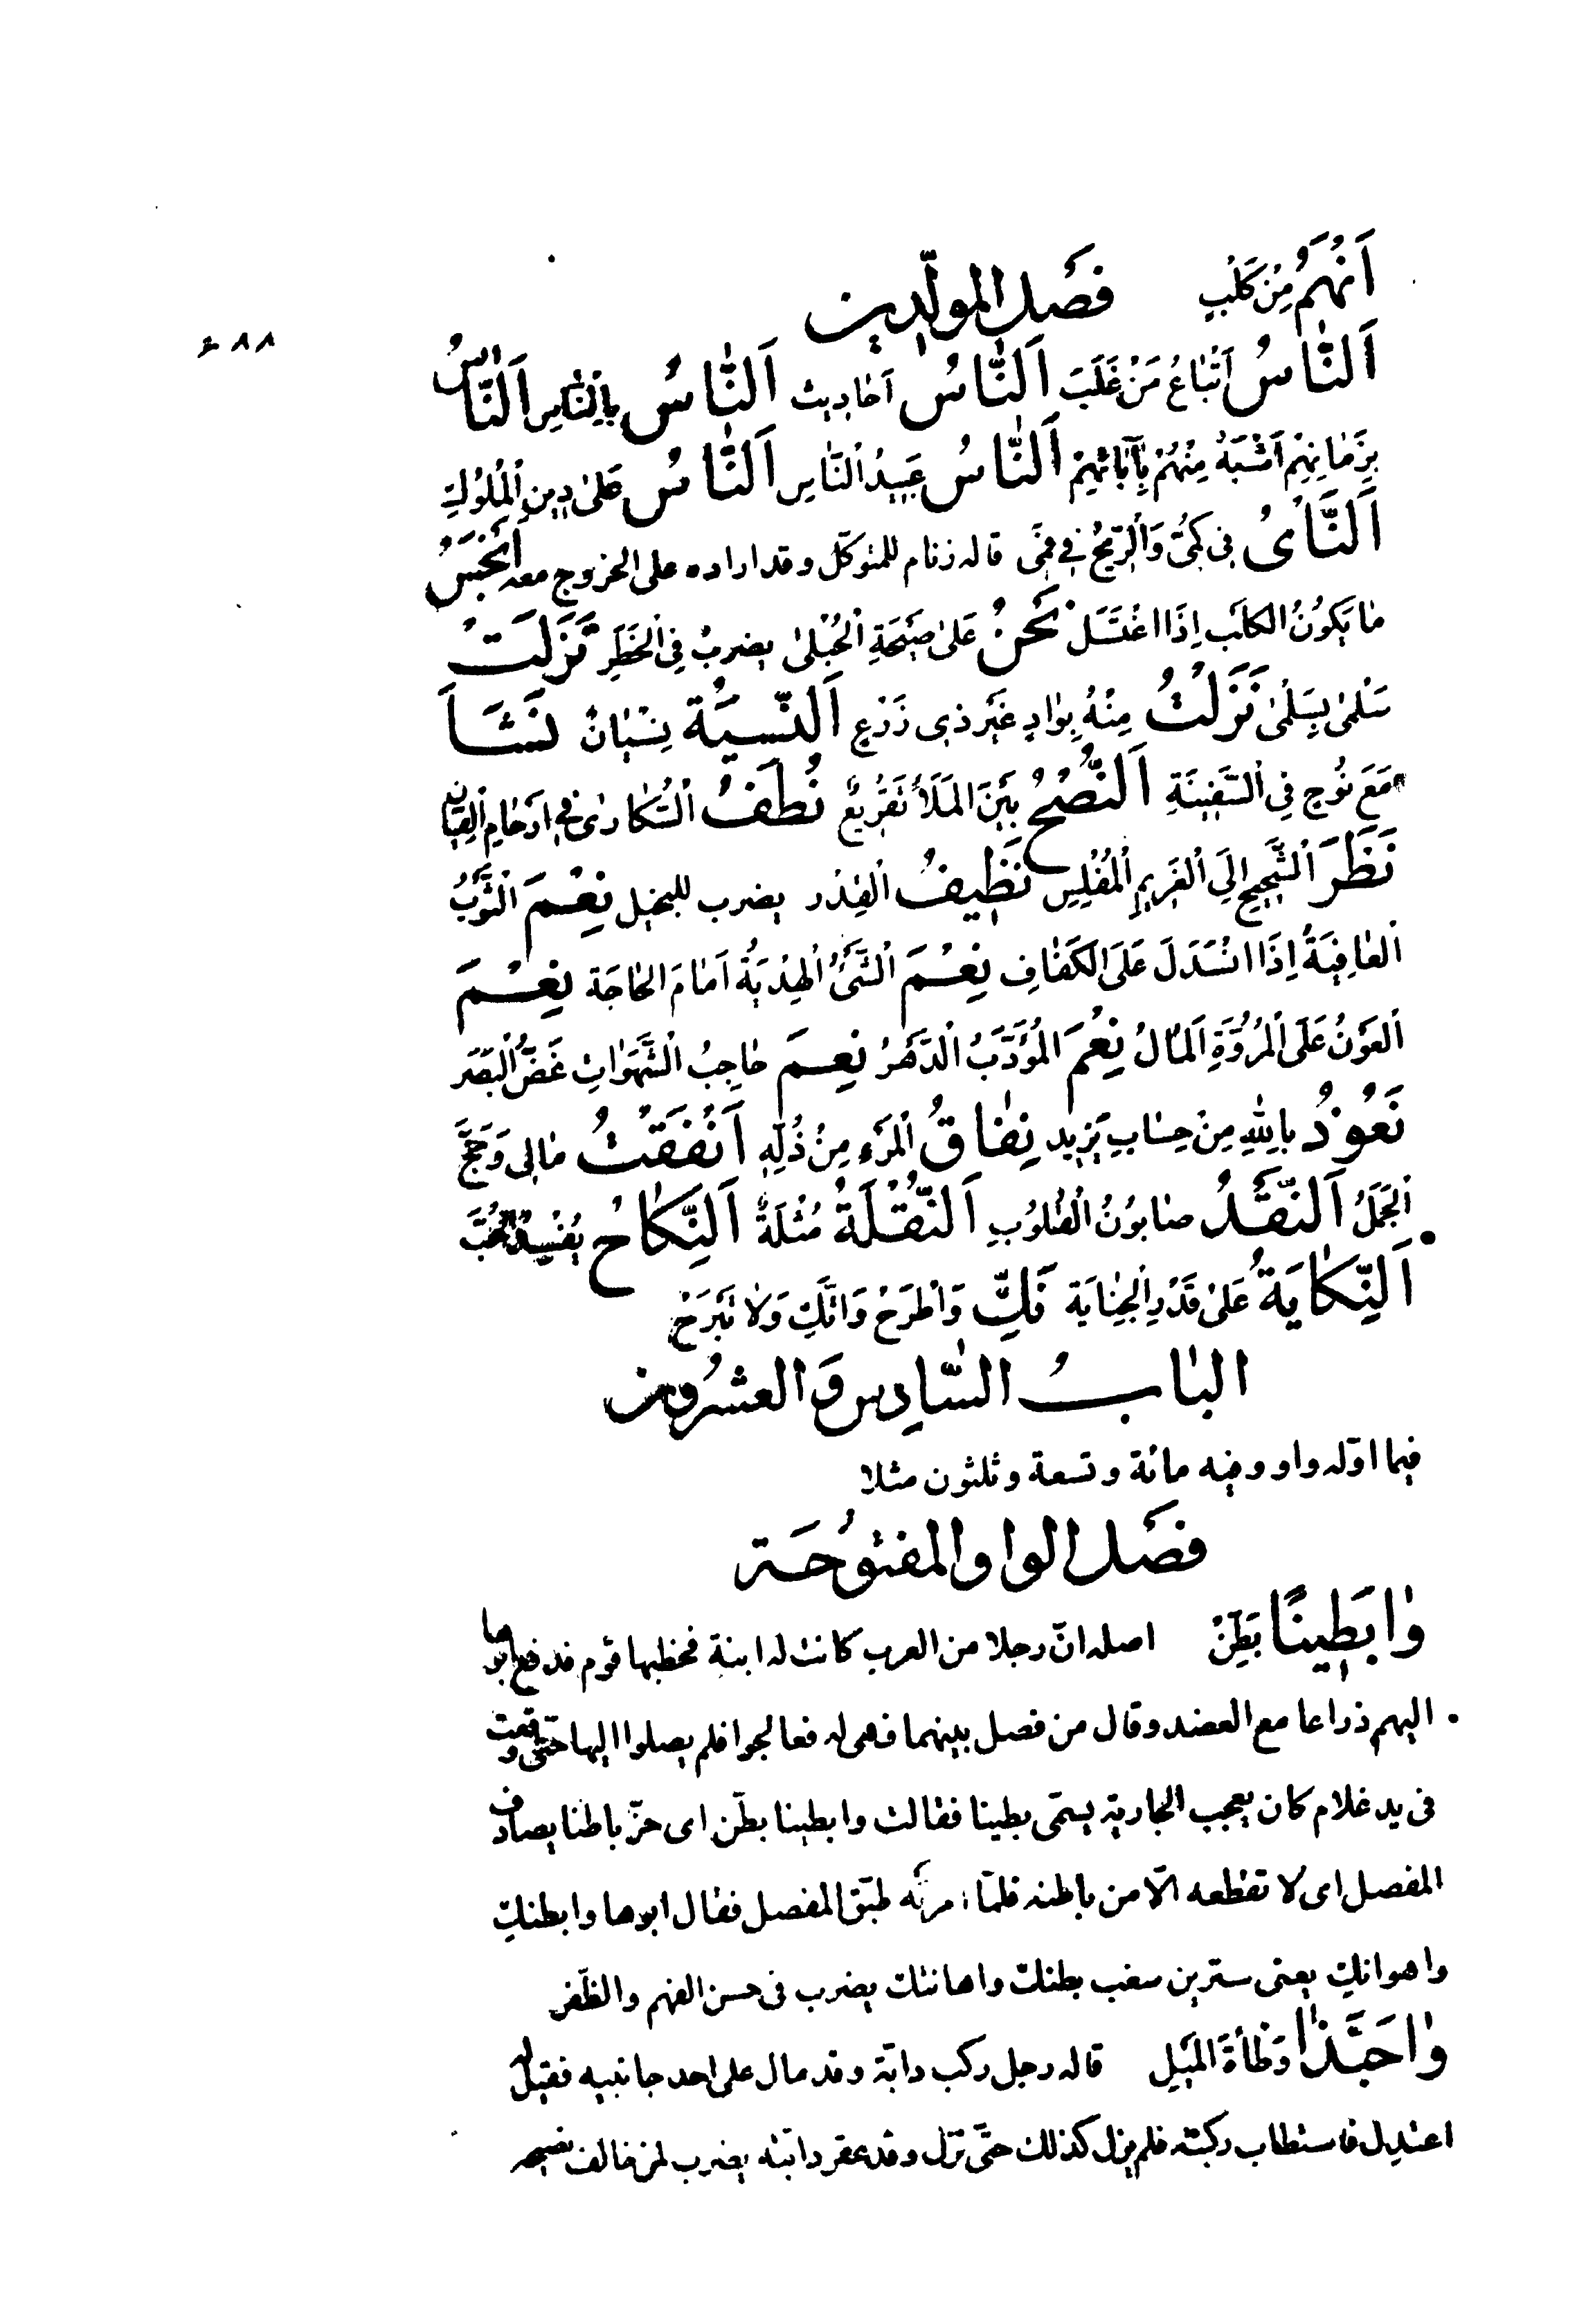 اَنْهَمُ مِنْ كَلْبٍ فَصَل المولّدين
٤٨٨
اَلنَّاسُ اَتْبَاعُ مَنْ غَلَبَ اَلنَّاسُ اَحَادِيث اَلنَّاسُ بِالنَّاسِ اَلنَّاسُ
بِزَمَانِهِمْ اَشْبَهُ مِنْهُمْ بِآبَائِهِمْ اَلنَّاسُ عَبِيدُ اَلنَّاسِ اَلنَّاسُ عَلىٰ دِينِ اَلْمُلُوكِ
اَلنَّاىُ فى كُمّى وَالرِّيحُ فِى فَمِى قاله زنام للمتوكّل وقد اراده على الخروج معه اَنْجَسُ
مٰا يَكُونُ الكلَب اِذَا اغْتَسَل نَحْنُ عَلىٰ صَيْحَةِ اَلْحُبْلىٰ يضربُ فِى اَلْخَطَرِ نَزَلَتْ
سَلْمىٰ بِسَلْمىٰ نَزَلْتُ مِنْهُ بِوٰادٍ غَيْرِ ذى زَرْعٍ اَلنَّسِيَّة نِسْيٰانٌ نَشَأَ
مَعَ نُوحٍ فِى اَلسَّفِينَةِ اَلنُّصْحُ بَيْنَ المَلَأ تَقْرِيعٌ نُطَفُ اَلسُّكٰارىٰ فى اَرْحٰامِ القِيٰانِ
نَظَرَ اَلشَّحِيحِ اِلَى اَلْغَرِيمِ اَلْمُفْلِسِ نَظِيفُ اَلقِدْر يضرب للبخيل نِعْمَ اَلثَّوْبُ
اَلعٰافِيَةُ اِذَا انْسَدَلَ عَلَى الكَفٰافِ نِعْمَ اَلشَّىْءُ اَلْهِدْيَةُ اَمٰامَ الحٰاجَة نِعْمَ
اَلعَوْنُ عَلَى اَلْمُرُوَّةِ اَلمٰالُ نِعْمَ المُؤَدَّبُ اَلدَّهْرُ نِعْمَ حٰاجِبُ اَلشَّهَوٰاتِ غَضُّ اَلْبَصَر
نَعُوذُ بِاللهِ مِنْ حِسٰابٍ يَزِيد نِفٰاقُ اَلمَرْءِ مِنْ ذُلِّهِ اَنْفَقْتُ مٰالِى وَحَجَّ
اَلجَمَلُ اَلنَّقْدُ صٰابُونُ اَلْقُلُوبِ اَلنُّقْلَةُ مُثْلَةٌ اَلنِّكَاحُ يُفْسِدُ الْحُبَّ
اَلنِّكٰايَةُ عَلىٰ قَدْرِ اَلْجِنٰايَة نَكِّ وَاطْرَحْ وَاتَّكِ وَلا تَبْرَحْ
البٰابُ السّٰادِس وَ العشرُون
فيما اوّله واو وفيه مائة وتسعة وثلثون مثلا
فصَل الواو المفتوُحَة
وٰابَطِينًا بَطِّنْ اصله انّ رجلا من العرب كانت له ابنة فخطبها قوم فدفع ابوها
اليهم ذراعا مع العضد وقال من فصل بينهما فهى له فعالجوا فلم يصلوا اليها حتّى وقعت
فى يد غلام كان يعجب الجارية يسمّى بطينا فقالت وابطينا بطّن اى حزّ باطنا يصادف
المفصل اى لا تقطعه الّا من باطنه فلمّا مرّته طبّق المفصل فقال ابوها وابطنكِ
واهوانكِ يعنى سترين سغب بطنك واهانتك يضرب فى حسن الفهم والظّفر
وٰاحَبَّذٰا وَطْأَةَ المَيْلِ قاله رجل ركب دابّة وقد مال على احد جانبيه فقيل له
اعتدِل فاستطاب ركبته فلم يزل كذلك حتّى نزل وقد عقر دابّته يضرب لمن خالف نصيحه